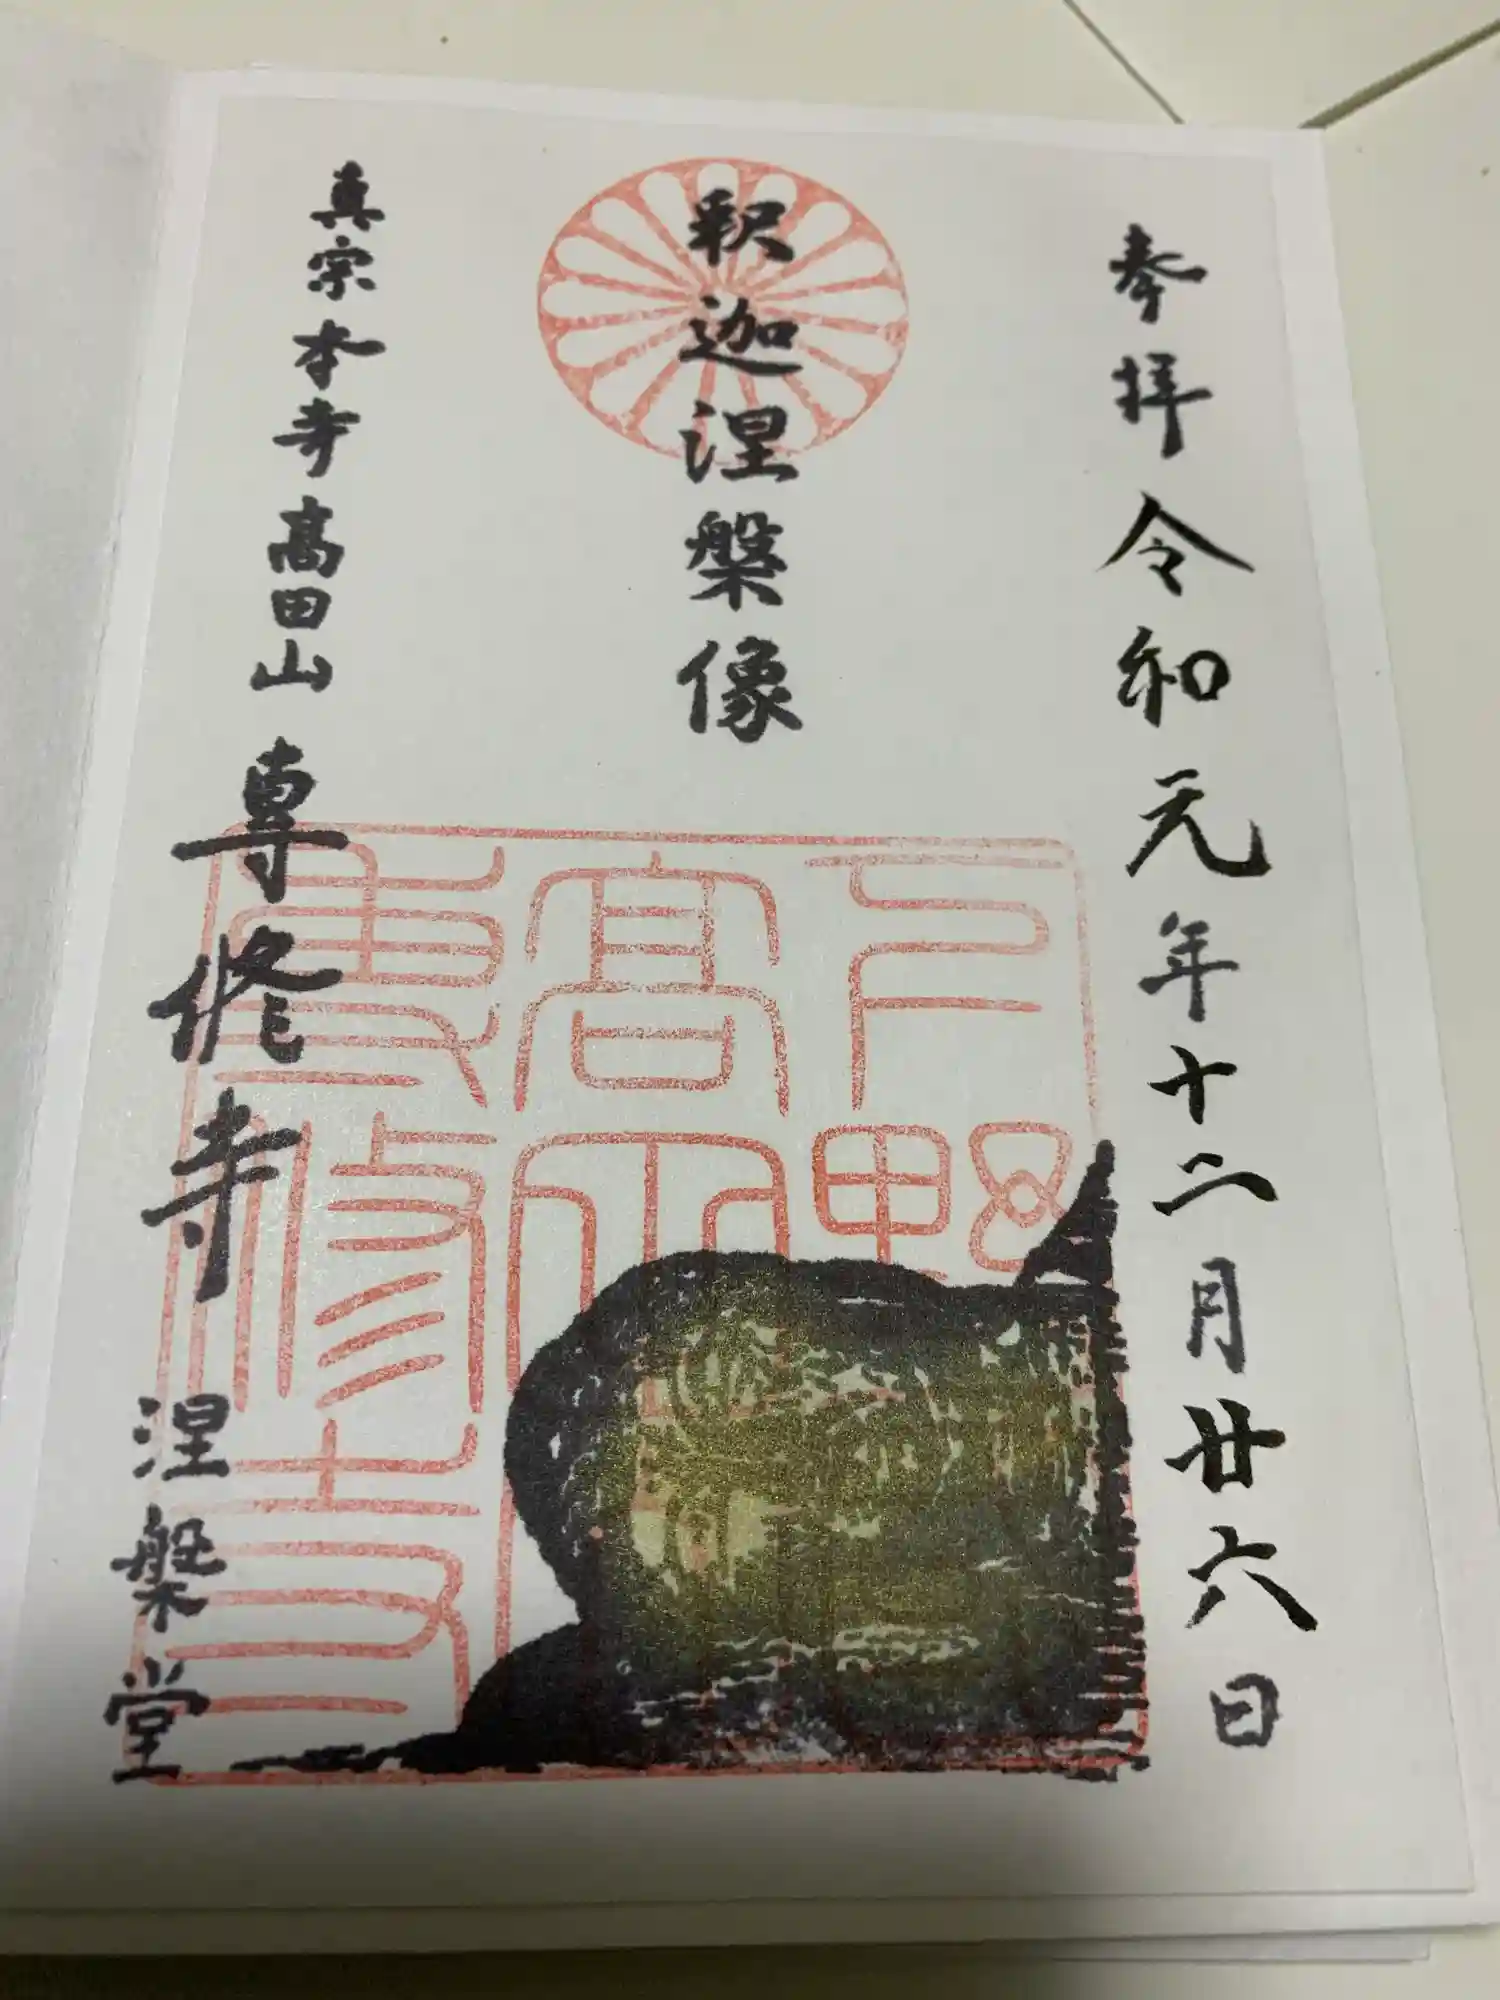 奉拝 令和元年十二月廿六日
釈迦涅槃像
真宗本寺高田山 専修寺 涅槃堂
下野 高田 専修寺